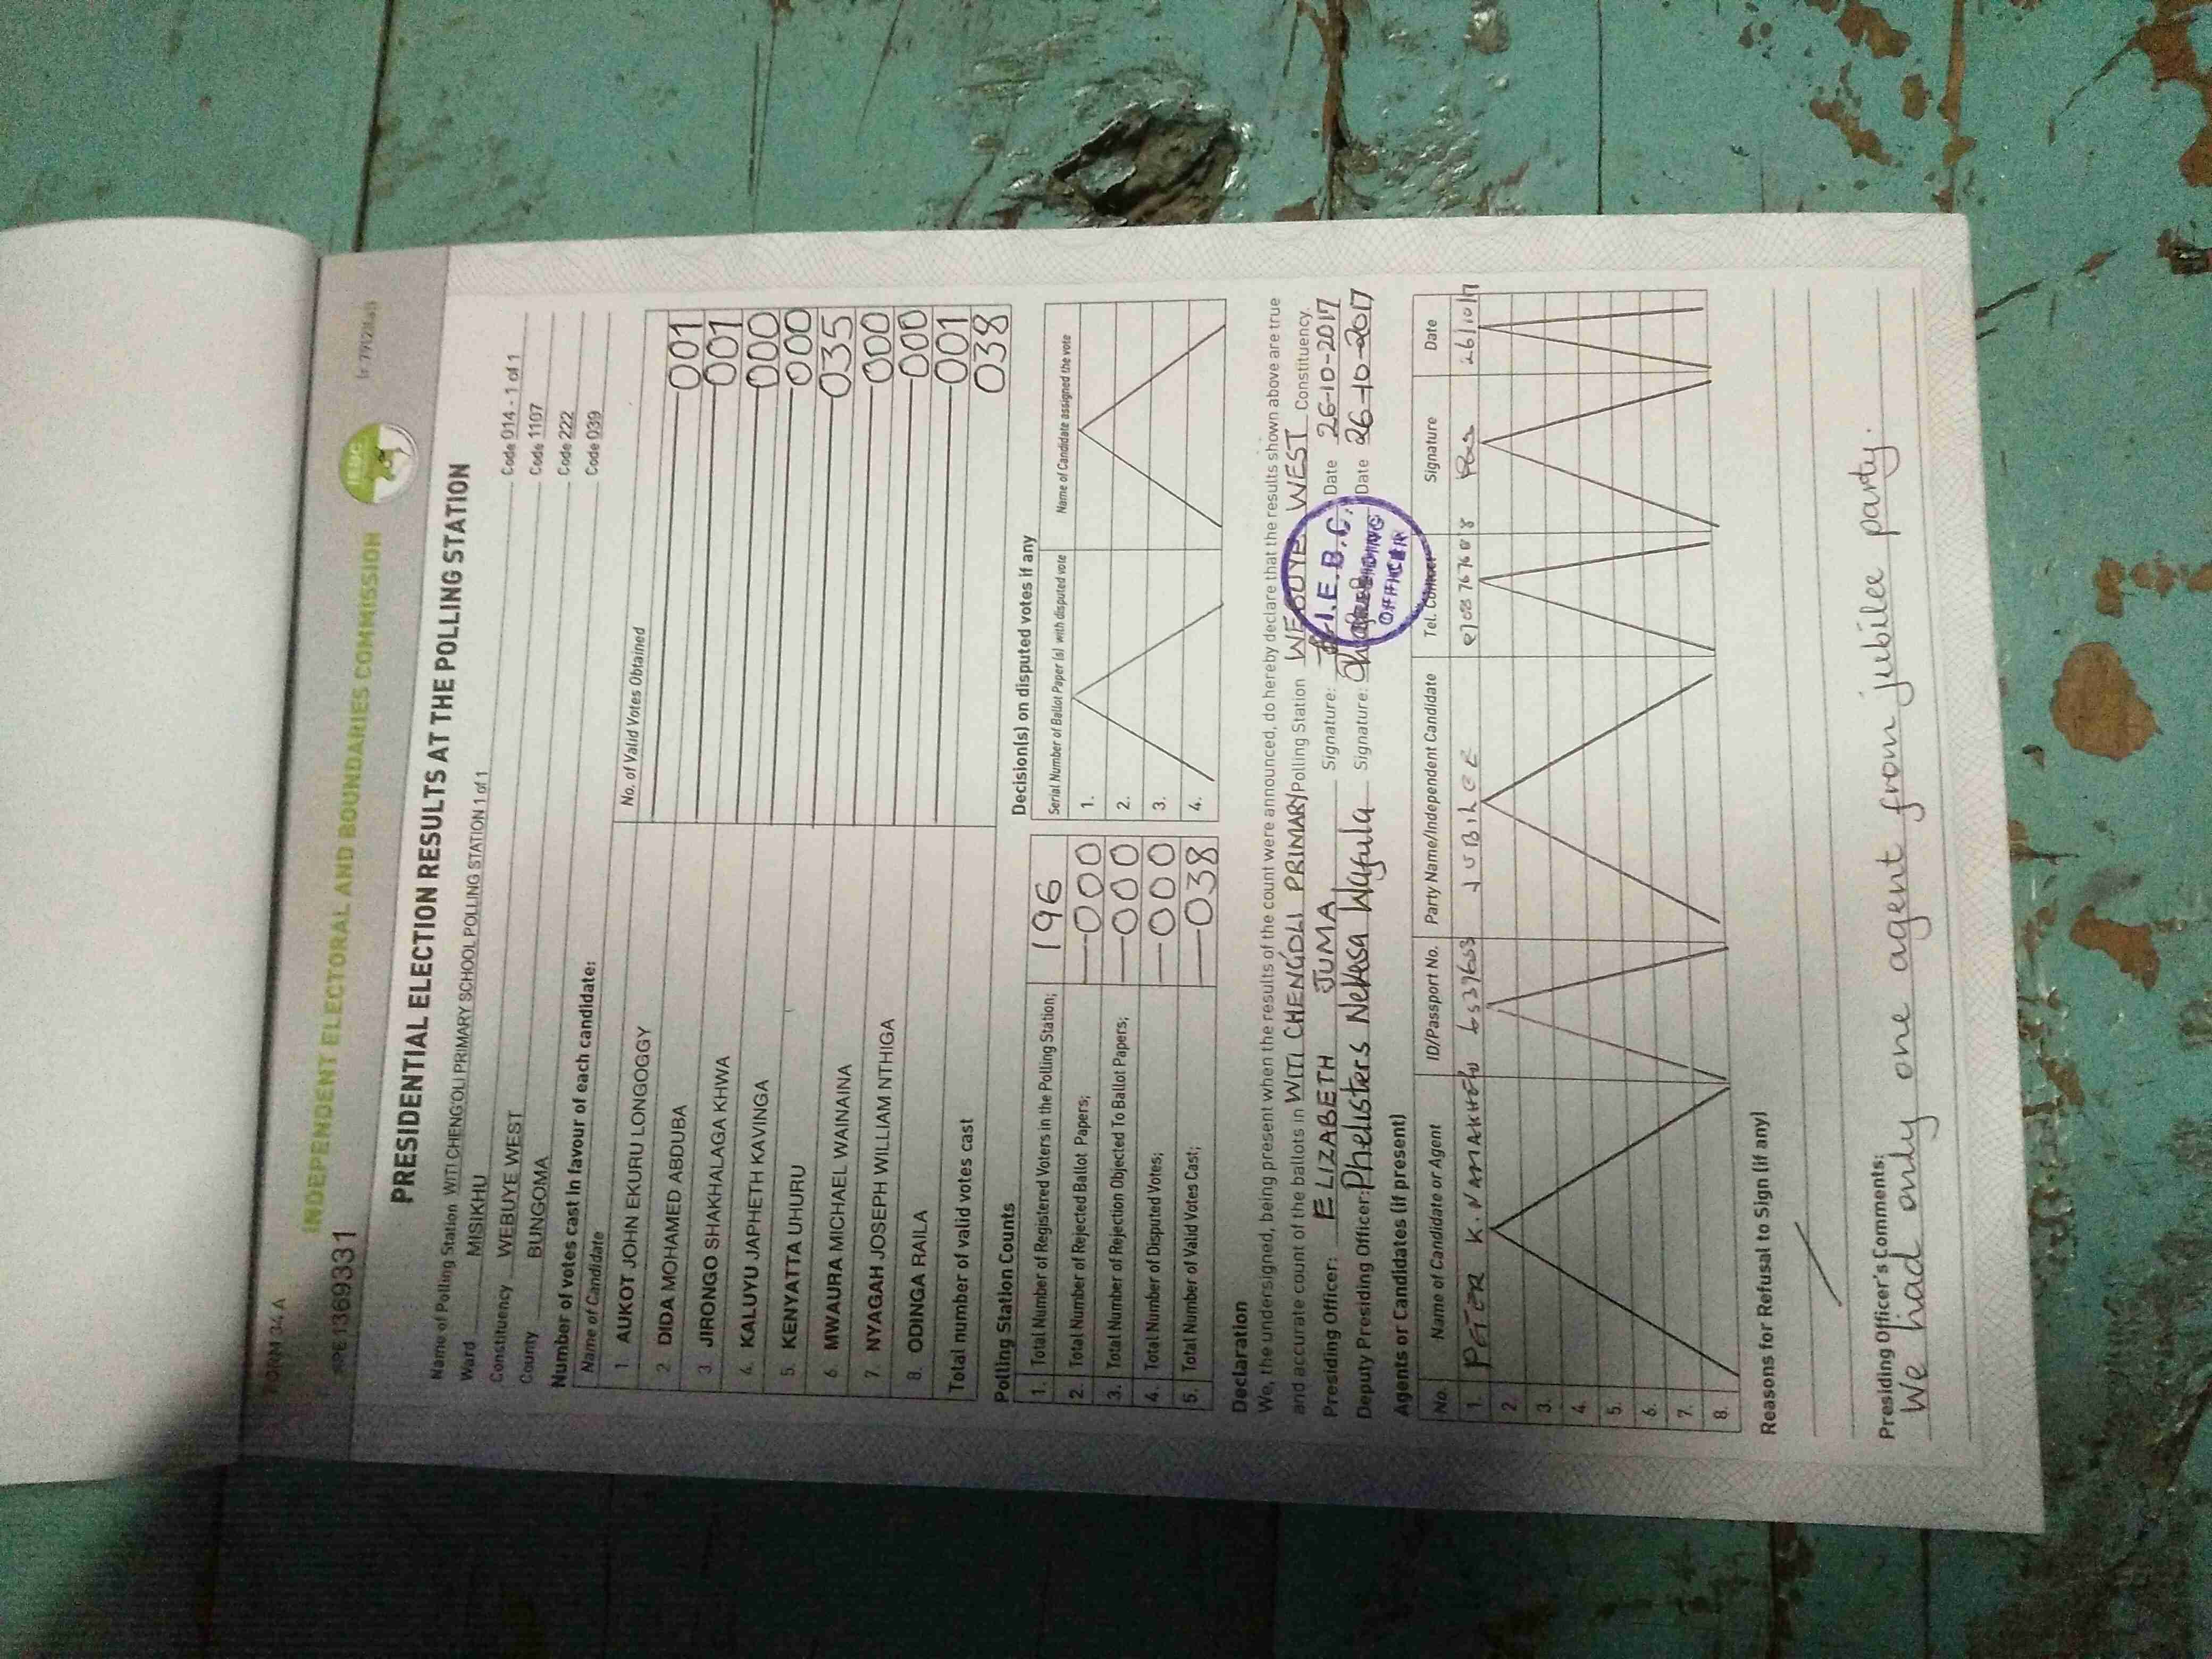 FORM 34 A
INDEPENDENT ELECTORAL AND BOUNDARIES COMMISSION
IEBC
#PE1369331
PRESIDENTIAL ELECTION RESULTS AT THE POLLING STATION
Name of Polling Station WITI CHENG'OLI PRIMARY SCHOOL POLLING STATION 1 of 1 Code 014 - 1 of 1
Ward MISIKHU Code 1107
Constituency WEBUYE WEST Code 222
County BUNGOMA Code 039
Number of votes cast in favour of each candidate:
Name of Candidate No. of Valid Votes Obtained
1 AUKOT JOHN EKURU LONGOGGY 001
2 DIDA MOHAMED ABDUBA 001
3 JIRONGO SHAKHALAGA KHWA 000
4. KALUYU JAPHETH KAVINGA 000
5. KENYATTA UHURU 035
6 MWAURA MICHAEL WAINAINA 000
7. NYAGAH JOSEPH WILLIAM NTHIGA 000
8. ODINGA RAILA 001
Total number of valid votes cast 038
Polling Station Counts
1. Total Number of Registered Voters in the Polling Station; 196
2. Total Number of Rejected Ballot Papers; 000
3. Total Number of Rejection Objected To Ballot Papers; 000
4. Total Number of Disputed Votes; 000
5. Total Number of Valid Votes Cast; 038
Decision(s) on disputed votes if any
Serial Number of Ballot Paper (s) with disputed vote Name of Candidate assigned the vote
1.
2.
3.
4.
Declaration
We, the undersigned, being present when the results of the count were announced, do hereby declare that the results shown above are true
and accurate count of the ballots in WITI CHENG'OLI PRIMARY Polling Station WEBUYE WEST Constituency.
Presiding Officer: ELIZABETH JUMA Signature: Date 26-10-2017
Deputy Presiding Officer: Phelisters Nekesa Wafula Signature: Date 26-10-2017
I.E.B.C.
PRESIDING
OFFICER
Agents or Candidates (if present)
No. Name of Candidate or Agent ID/Passport No. Party Name/Independent Candidate Tel. Contact Signature Date
1. PETER K. JUBILEE 26/10/17
2.
3.
4.
5.
6.
7.
8.
Reasons for Refusal to Sign (if any)
Presiding Officer's Comments:
We had only one agent from jubilee party.